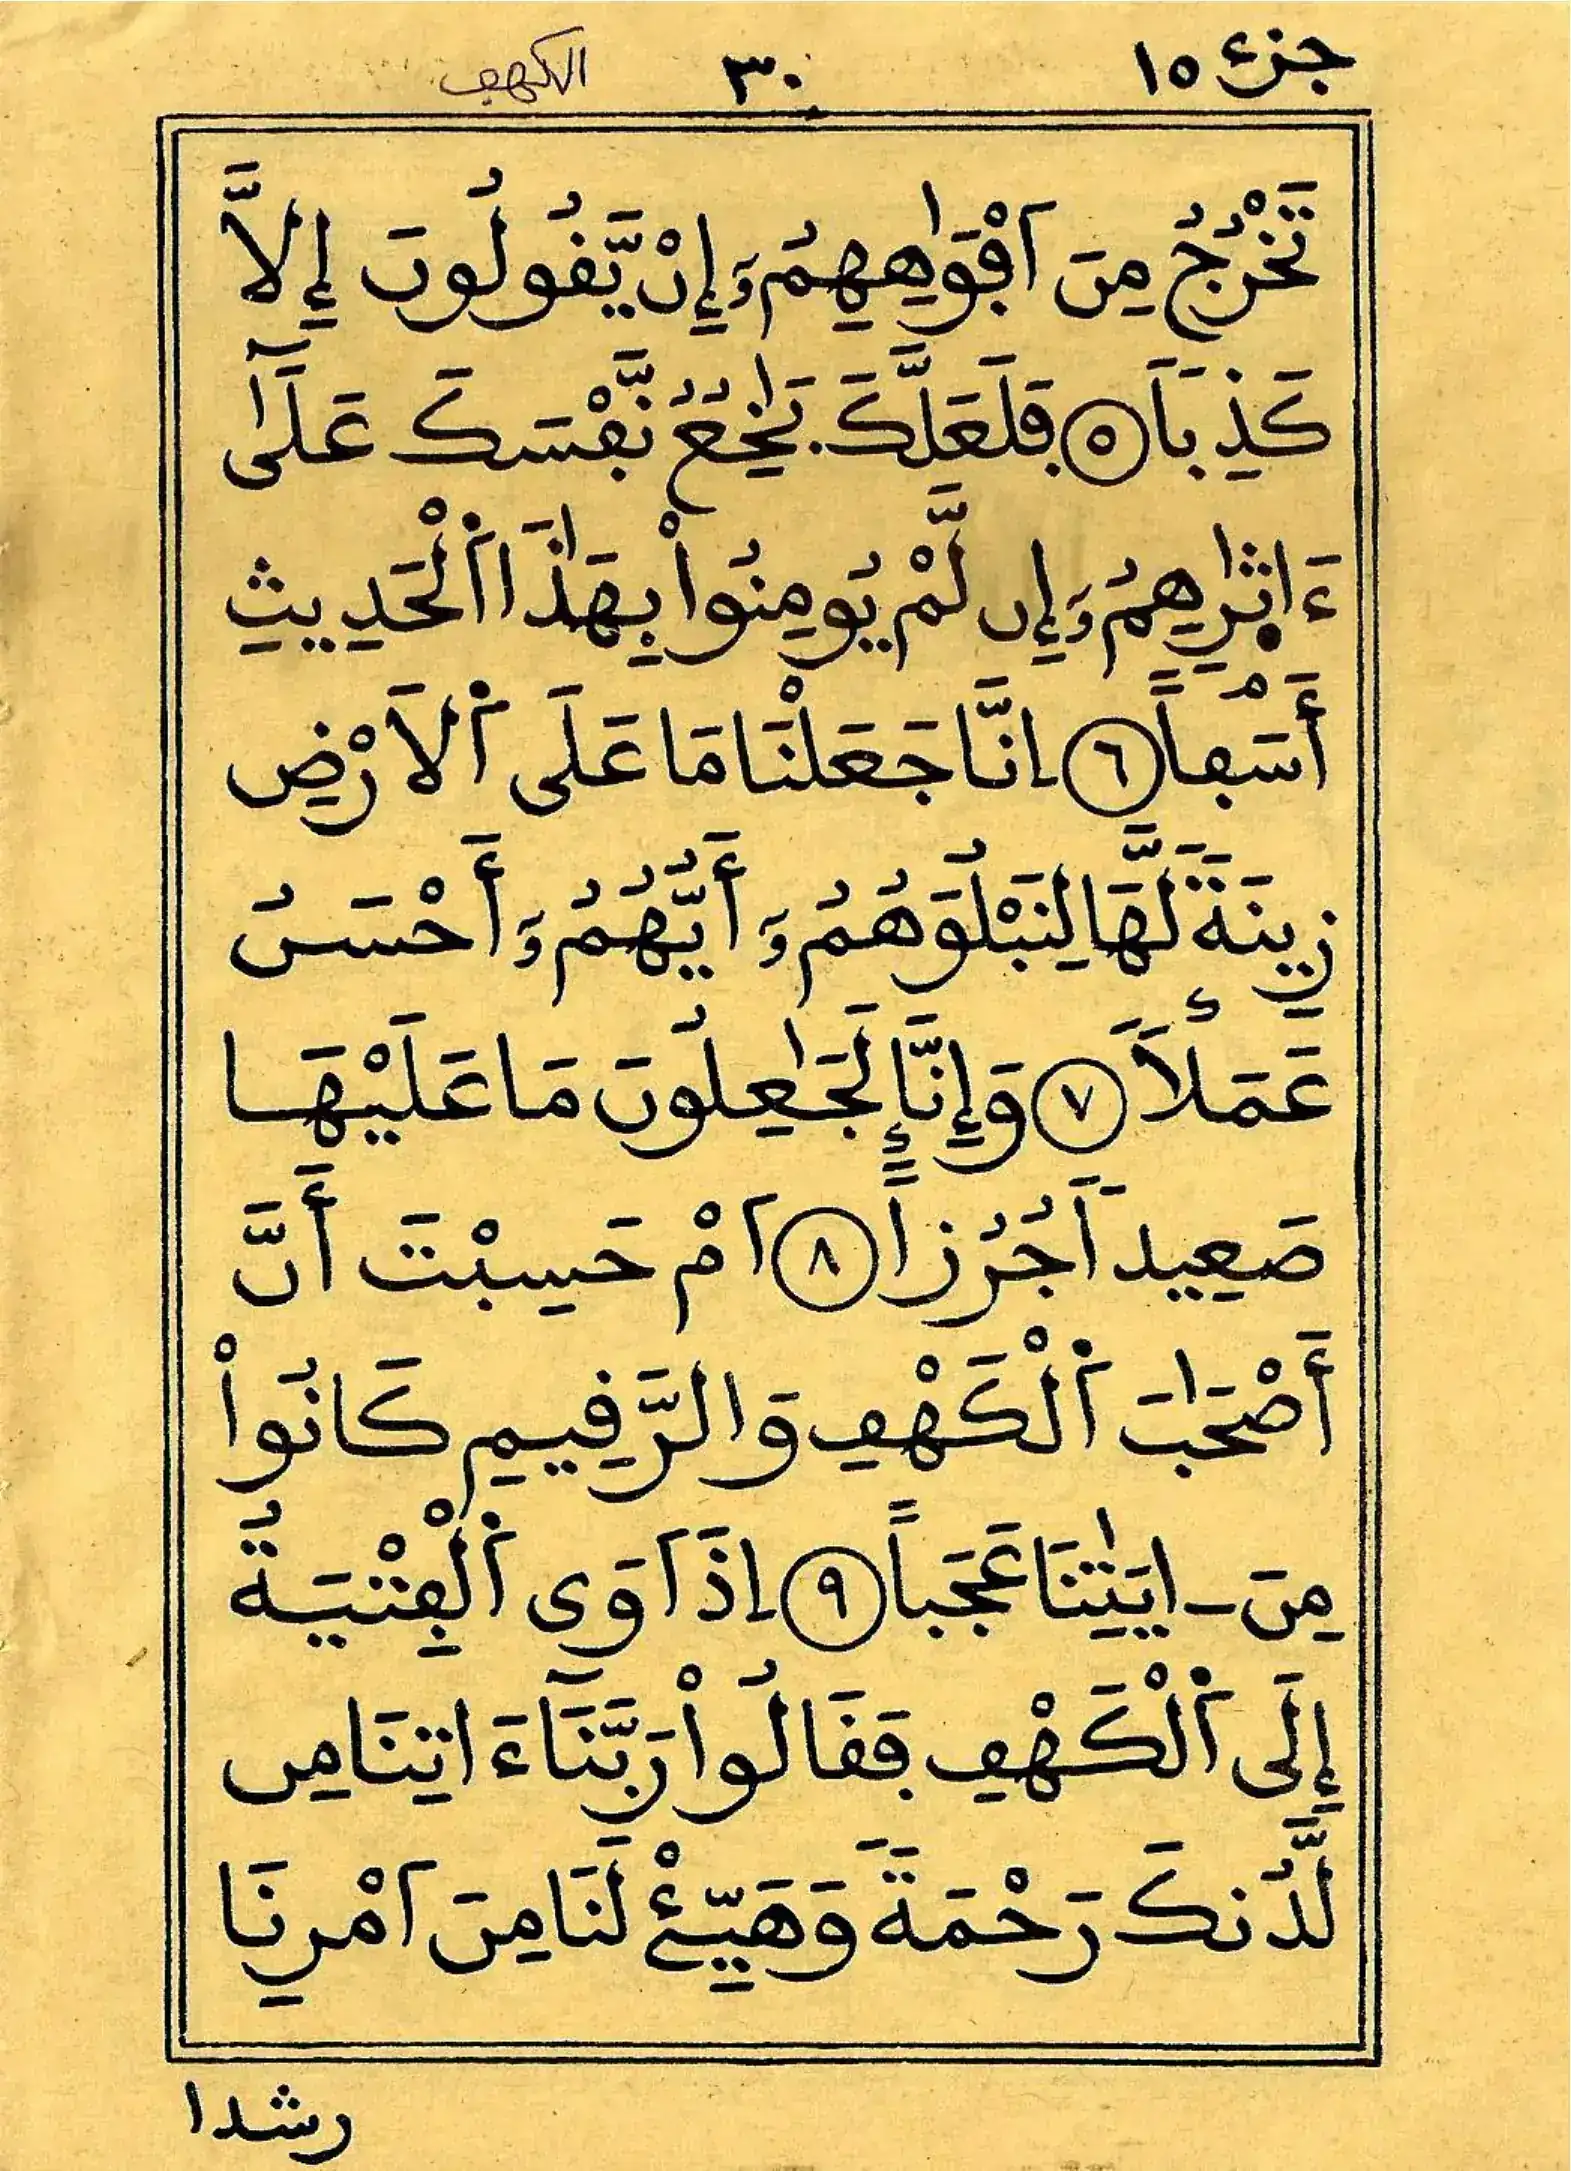 جزء ١٥
٣٠
الكهف
تَخْرُجُ مِنَ اَفْوَٰهِهِمُ وَإِنْ يَّقُولُونَ إِلاَّ
كَذِباَ ٥ فَلَعَلَّكَ بَٰخِعُ نَّفْسَكَ عَلَىٰٓ
ءَاثٰرِهِمُ وَإِن لَّمْ يُومِنُواْ بِهَٰذَا اَ۬لْحَدِيثِ
أَسَفاً ٦ اِنَّا جَعَلْنَا مَا عَلَى اَ۬لاَرْضِ
زِينَةَ لَّهَا لِنَبْلُوَهُمُ وَ أَيُّهُمُ وَ أَحْسَنُ
عَمَلاَ ٧ وَإِنَّا لَجَٰعِلُونَ مَا عَلَيْهَا
صَعِيداَ جُرُزاً ٨ اَمْ حَسِبْتَ أَنَّ
أَصْحَٰبَ اَ۬لْكَهْفِ وَالرَّقِيمِ كَانُواْ
مِنَ ـ ايَٰتِنَا عَجَباً ٩ اِذَ اَوَى اَ۬لْفِتْيَةُ
إِلَى اَ۬لْكَهْفِ فَقَالُواْ رَبَّنَآ ءَاتِنَا مِن
لَّدُنكَ رَحْمَةَ وَهَيِّئْ لَنَا مِنَ اَمْرِنَا
رشدا